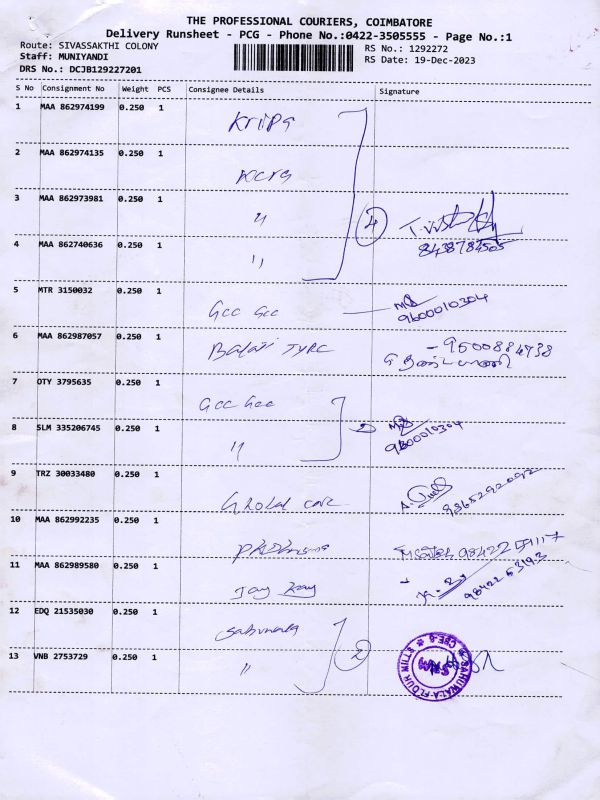 THE PROFESSIONAL COURIERS, COIMBATORE
Delivery Runsheet - PCG - Phone No.:0422-3505555 - Page No.:1
Route: SIVASSAKTHI COLONY RS No.: 1292272
Staff: MUNIYANDI RS Date: 19-Dec-2023
DRS No.: DCJB129227201
S No Consignment No Weight PCS Consignee Details Signature
1 MAA 862974199 0.250 1
2 MAA 862974135 0.250 1
3 MAA 862973981 0.250 1 "
4 MAA 862740636 0.250 1 "
4
8438784505
5 MTR 3150032 0.250 1 GCC GCC
9600010304
6 MAA 862987057 0.250 1 Balaji TYRE
- 9500884738
7 OTY 3795635 0.250 1 GCC GCC
8 SLM 335206745 0.250 1 "
2
9600010304
9 TRZ 30033480 0.250 1
9365292092
10 MAA 862992235 0.250 1
11 MAA 862989580 0.250 1 Jay Kay
9842253193
12 EDQ 21535030 0.250 1
13 VNB 2753729 0.250 1 "
2